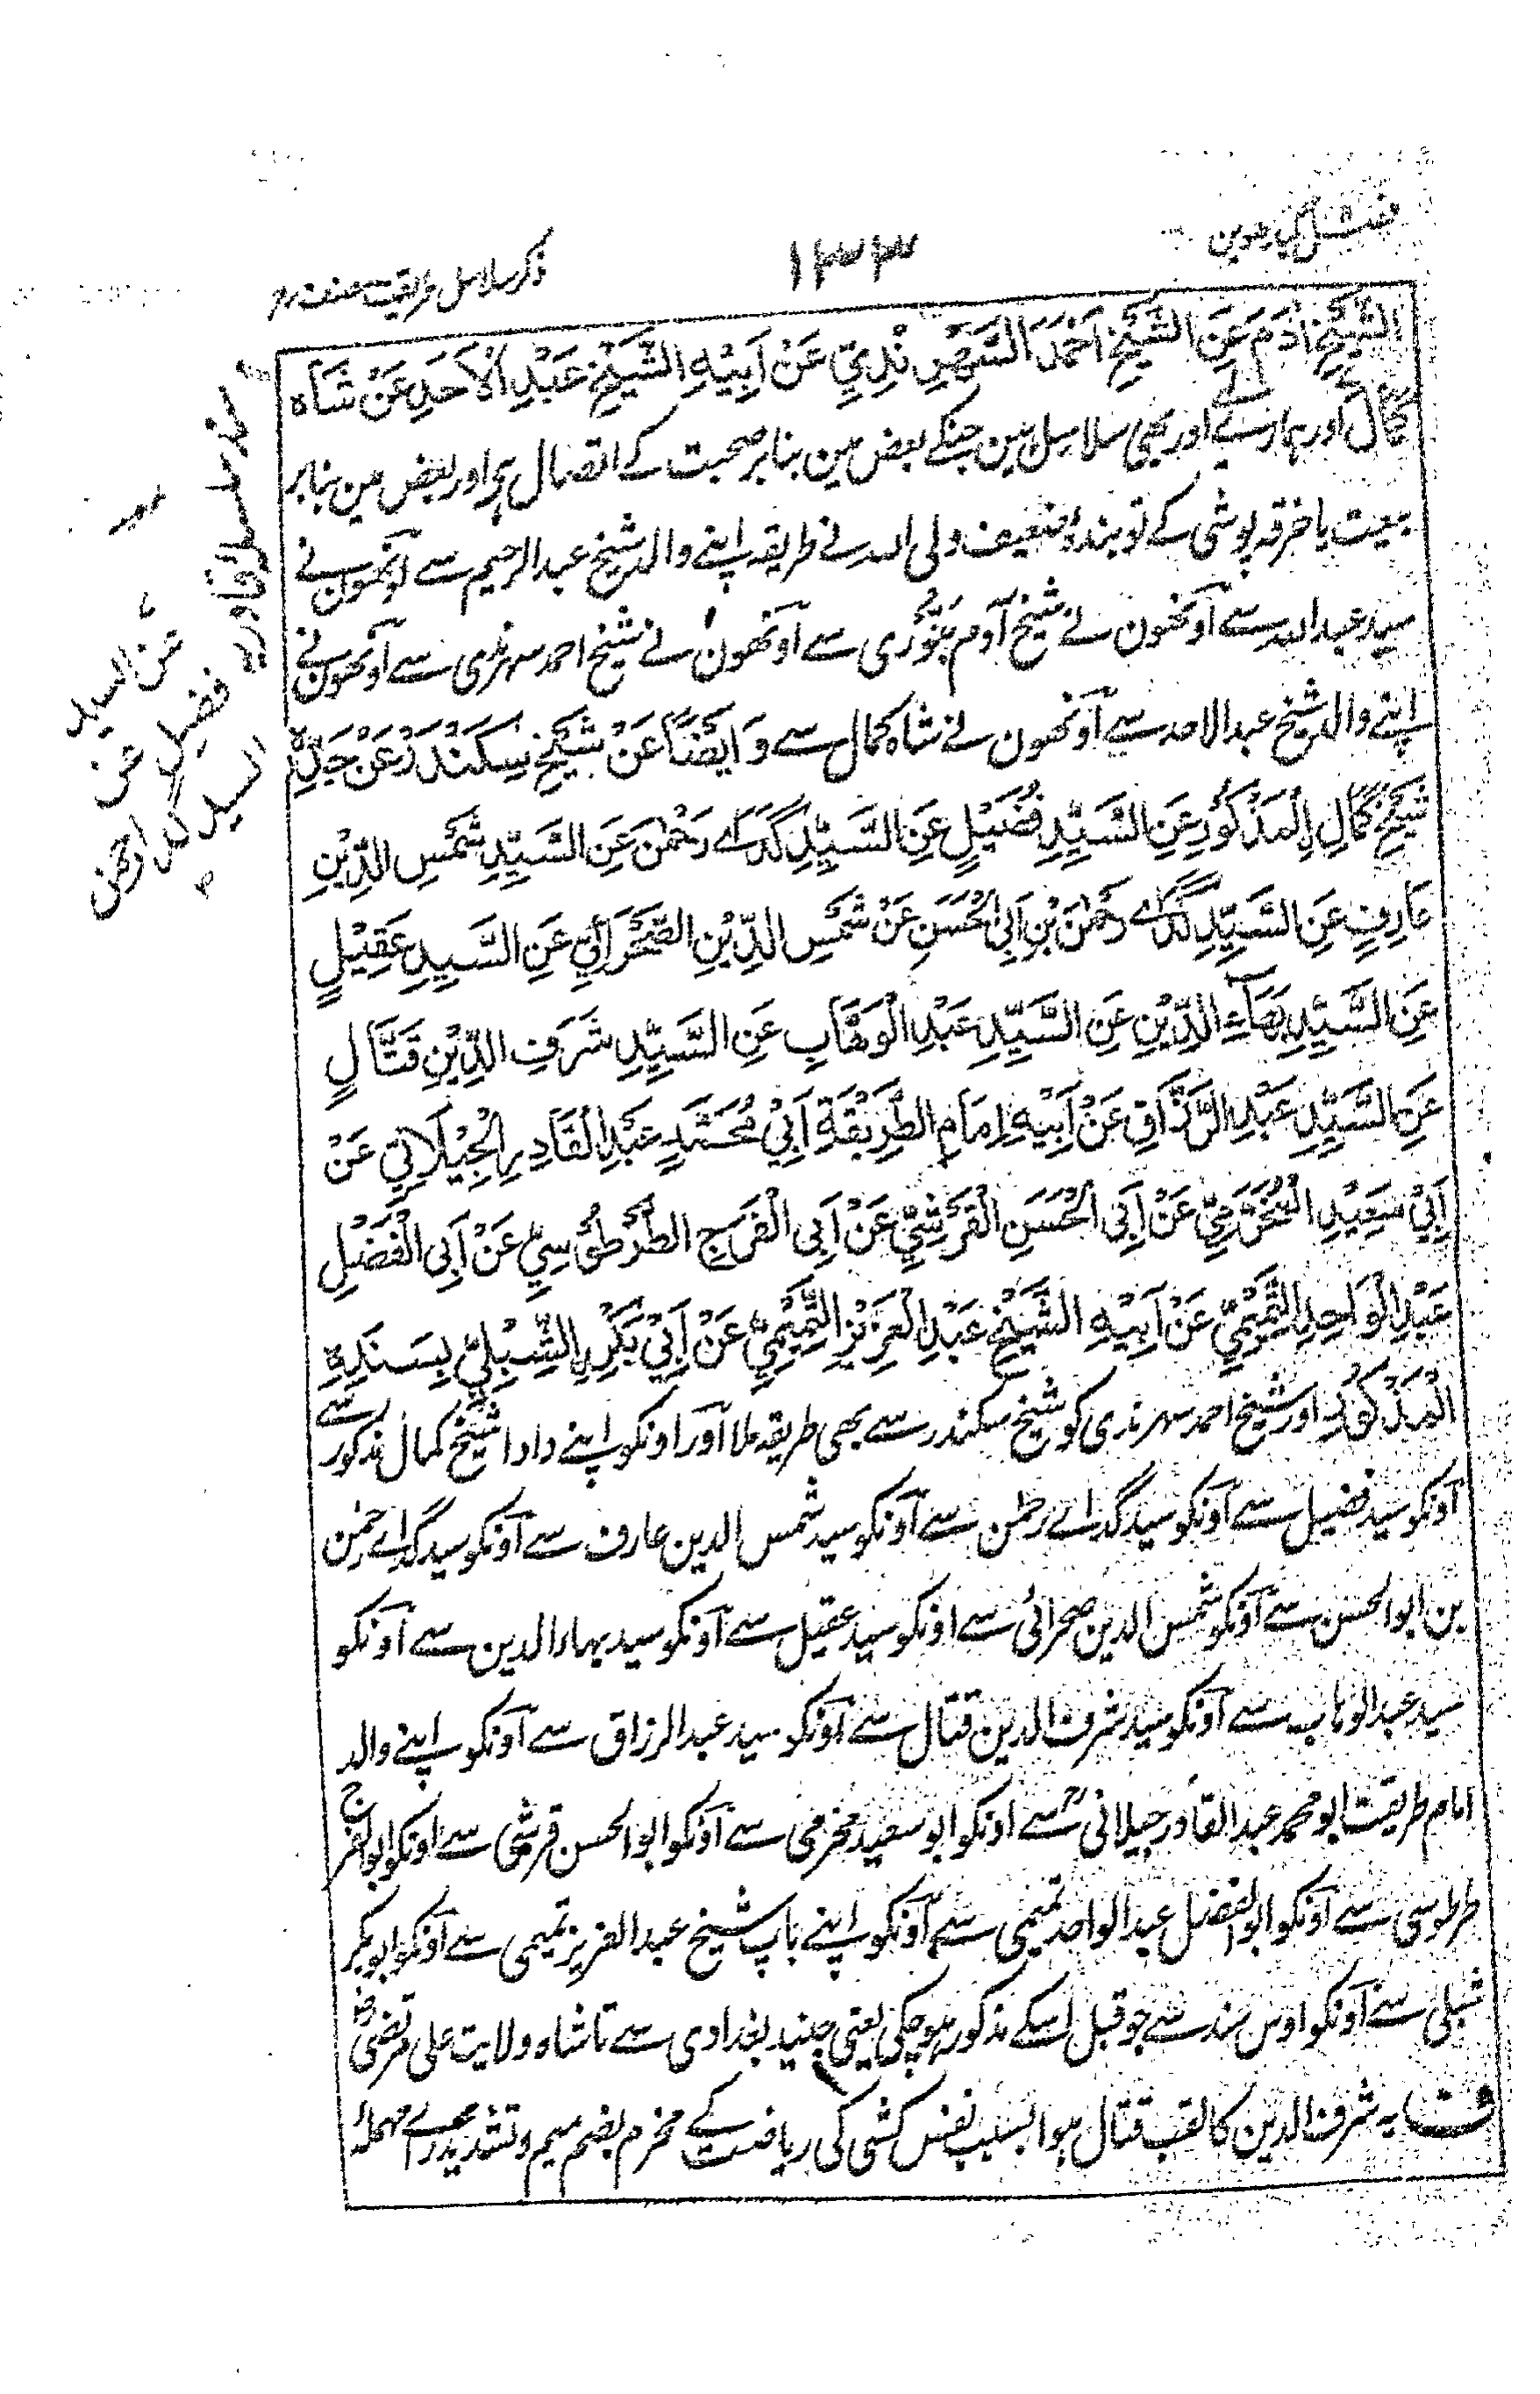 فصل گیارھوین
۱۳۳
ذکر سلاسل طریقت مصنف رح
الشَّيْخِ اٰدَمَ عَنِ الشَّيْخِ اَحْمَدَ السَّهْرِنْدِيِّ عَنْ اَبِيْهِ الشَّيْخِ عَبْدِ الْاَحَدِ عَنْ شَاه
كَمَال اور ہمارے اور بھی سلاسل ہین جنکے بعض مین بنابر صحبت کے اتصال ہی اور بعض مین بنابر
بیعت یا خرقہ پوشی کے تو بندۂ ضعیف ولی اللہ نے طریقہ اپنے والد شیخ عبد الرحیم سے اونھون نے
سید عبد اللہ سے اونھون نے شیخ آدم بَنُّوری سے اونھون نے شیخ احمد سہرندی سے اونھون نے
اپنے والد شیخ عبد الاحد سے اونھون نے شاہ کمال سے وَ اَيْضًا عَنْ شَيْخ سِكَنْدَرْ عَنْ جَدِّهٖ
شَيْخِ كَمَالِ اِلْمَذْكُوْرِ عَنِ السَّيِّدِ فُضَيْلٍ عَنِ السَّيِّدِ گَدَاے رَحْمٰن عَنِ السَّيِّدِ شَمْسِ الدِّيْنِ
عَارِفٍ عَنِ السَّيِّدِ گَدَاے رَحْمٰنَ بْنِ اَبِی الْحَسَنِ عَنْ شَمْسِ الدِّيْنِ الصَّحْرَائِيِّ عَنِ السَّيِّدِ عَقِيْلٍ
عَنِ السَّيِّدِ بَهَآءِ الدِّيْنِ عَنِ السَّيِّدِ عَبْدِ الْوَهَّابِ عَنِ السَّيِّدِ شَرَفِ الدِّيْنِ قَتَّالٍ
عَنِ السَّيِّدِ عَبْدِ الرَّزَّاقِ عَنْ اَبِيْهِ اِمَامِ الطَّرِيْقَةِ اَبِيْ مُحَمَّدٍ عَبْدِ الْقَادِرِ الْجِيْلَانِيِّ عَنْ
اَبِيْ سَعِيْدِ الْمُخَرَّمِيِّ عَنْ اَبِی الْحَسَنِ الْقَرَشِيِّ عَنْ اَبِی الْفَرَجِ الطَّرْطُوْسِيِّ عَنْ اَبِی الْفَضْلِ
عَبْدِ الْوَاحِدِ التَّمِيْمِيِّ عَنْ اَبِيْهِ الشَّيْخِ عَبْدِ الْعَزِيْزِ التَّمِيْمِيِّ عَنْ اَبِيْ بَكْرٍ الشِّبْلِيِّ بِسَنَدِهِ
الْمَذْكُوْرِ اور شیخ احمد سہرندی کو شیخ سکندر سے بھی طریقہ ملا اور اونکو اپنے دادا شیخ کمال مذکور سے
اونکو سید فضیل سے اونکو سید گداے رحمٰن سے اونکو سید شمس الدین عارف سے اونکو سید گداے رحمٰن
بن ابو الحسن سے اونکو شمس الدین صحرائی سے اونکو سید عقیل سے اونکو سید بہاء الدین سے اونکو
سید عبد الوہاب سے اونکو سید شرف الدین قتال سے اونکو سید عبد الرزاق سے اونکو اپنے والد
امام طریقت ابو محمد عبد القادر جیلانی رح سے اونکو ابو سعید مخرمی سے اونکو ابو الحسن قرشی سے اونکو ابو الفرج
طرطوسی سے اونکو ابو الفضل عبد الواحد تمیمی سے اونکو اپنے باپ شیخ عبد العزیز تمیمی سے اونکو ابو بکر
شبلی سے اونکو اوس سند سے جو قبل اسکے مذکور ہو چکی یعنی جنید بغدادی سے تا شاہ ولایت علی مرتضیٰ رض
ف یہ شرف الدین کا لقب قتال ہوا بسبب نفس کشی کی ریاضت کے مخرم بضم میم و تشدید راے مہملہ
عن السید
فضیل عن
السید گدا رحمن